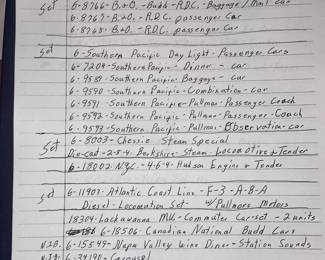 Set 6-8766-B.+O.-Budd-R.D.C.-Baggage/Mail car
6-8767-B.+O.-R.D.C. passenger Car
6-8768-B.+O.-R.D.C. passenger Car
Set 6-Southern Pacific Day Light-Passenger Cars
6-7204-Southern Pacific-Dinner-car
6-9589-Southern Pacific-Baggage-car
6-9590-Southern Pacific-Combination-car
6-9591-Southern Pacific-Pullman-Passenger Coach
6-9592-Southern Pacific-Pullman-Passenger-Coach
6-9593-Southern Pacific-Pullman-Observation-car
Set 6-8003-Chessie Steam Special
Die-cast-2-8-4-Berkshire-Steam-Locomotive+Tender
6-18002 N.Y.C.-4-6-4-Hudson Engine & Tender
Set 6-11903-Atlantic Coast Line-F-3-A-B-A
Diesel-Locomotion Set-W/Pullmore Motors
18304-Lackawanna MU-Commuter Car set-2 units
6-18506-Canadian National Budd Cars
N.I.B. 6-15549-Napa Valley Wine Diner-Station Sounds
N.I.B. 6-34190-Carousel